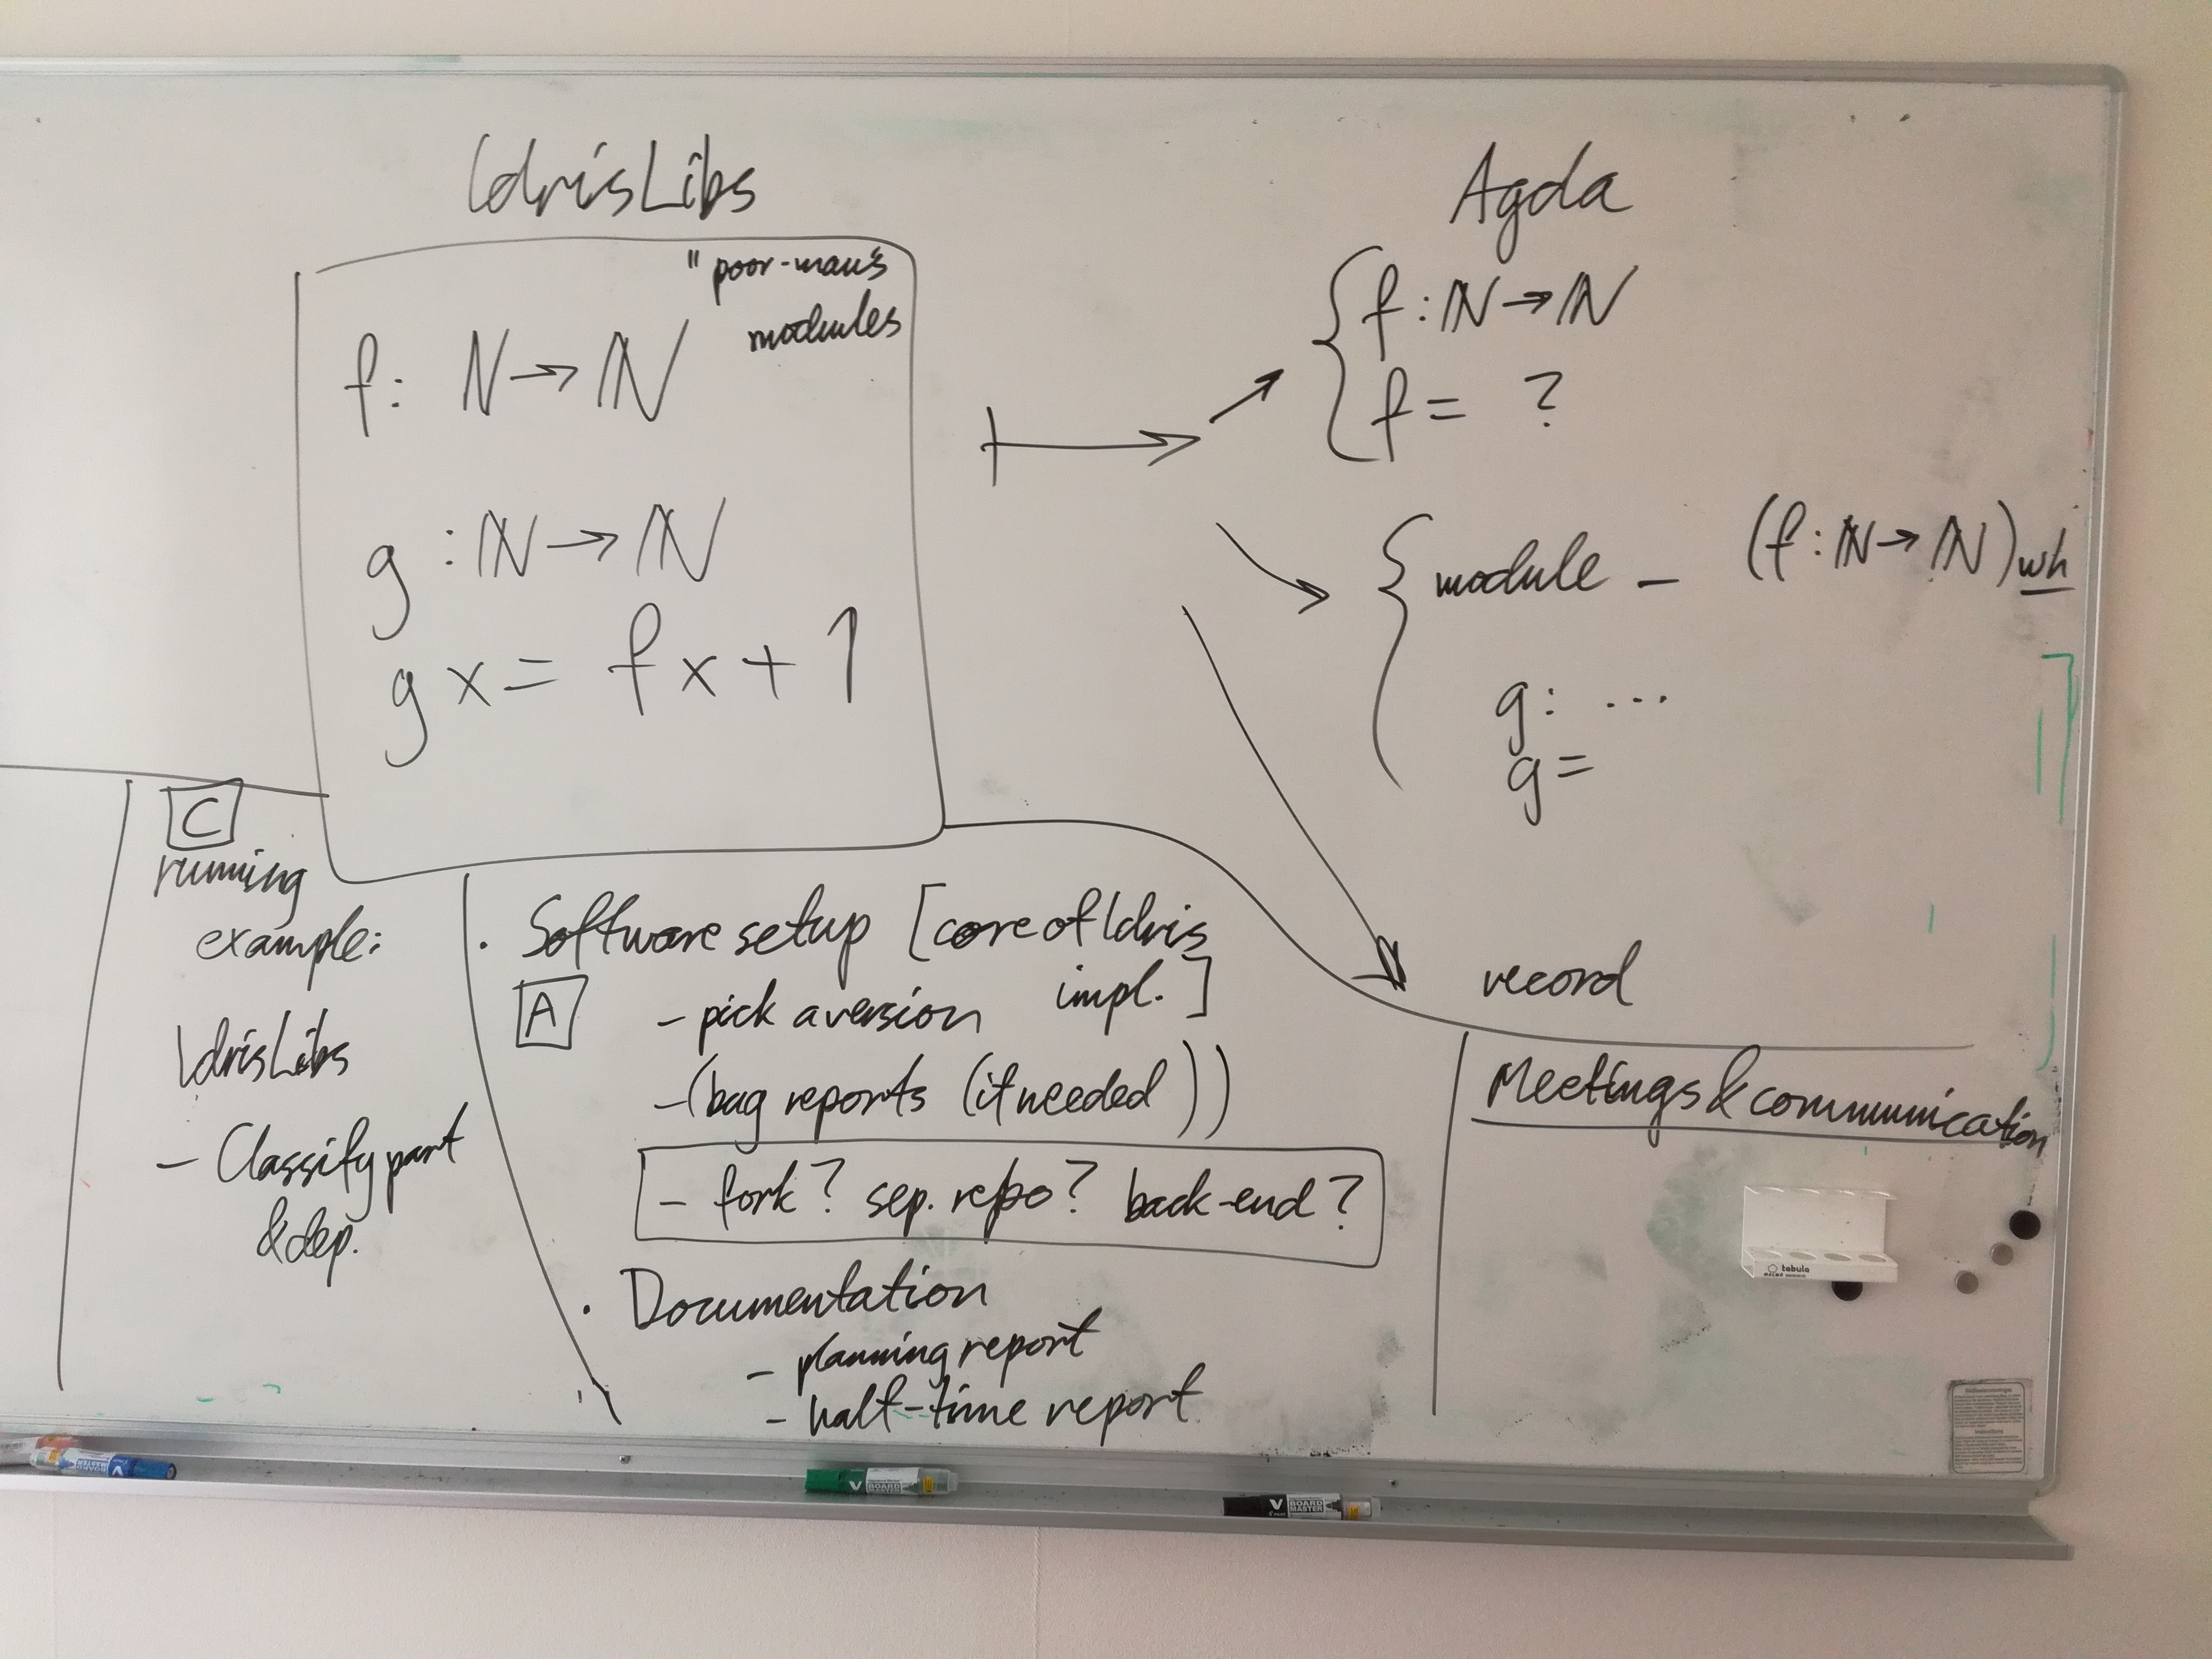 IdrisLibs
"poor-man's
modules
f: ℕ → ℕ
g : ℕ → ℕ
g x = f x + 1
Agda
f : ℕ → ℕ
f = ?
module _ (f : ℕ → ℕ) wh
g: ...
g =
record
C
running
example:
IdrisLibs
- Classify part
& dep.
· Software setup [core of Idris
impl.]
A
- pick a version
- (bug reports (if needed))
- fork? sep. repo? back-end?
· Documentation
- planning report
- half-time report
Meetings & communication
tabula
V BOARD MASTER
V BOARD MASTER
V BOARD MASTER